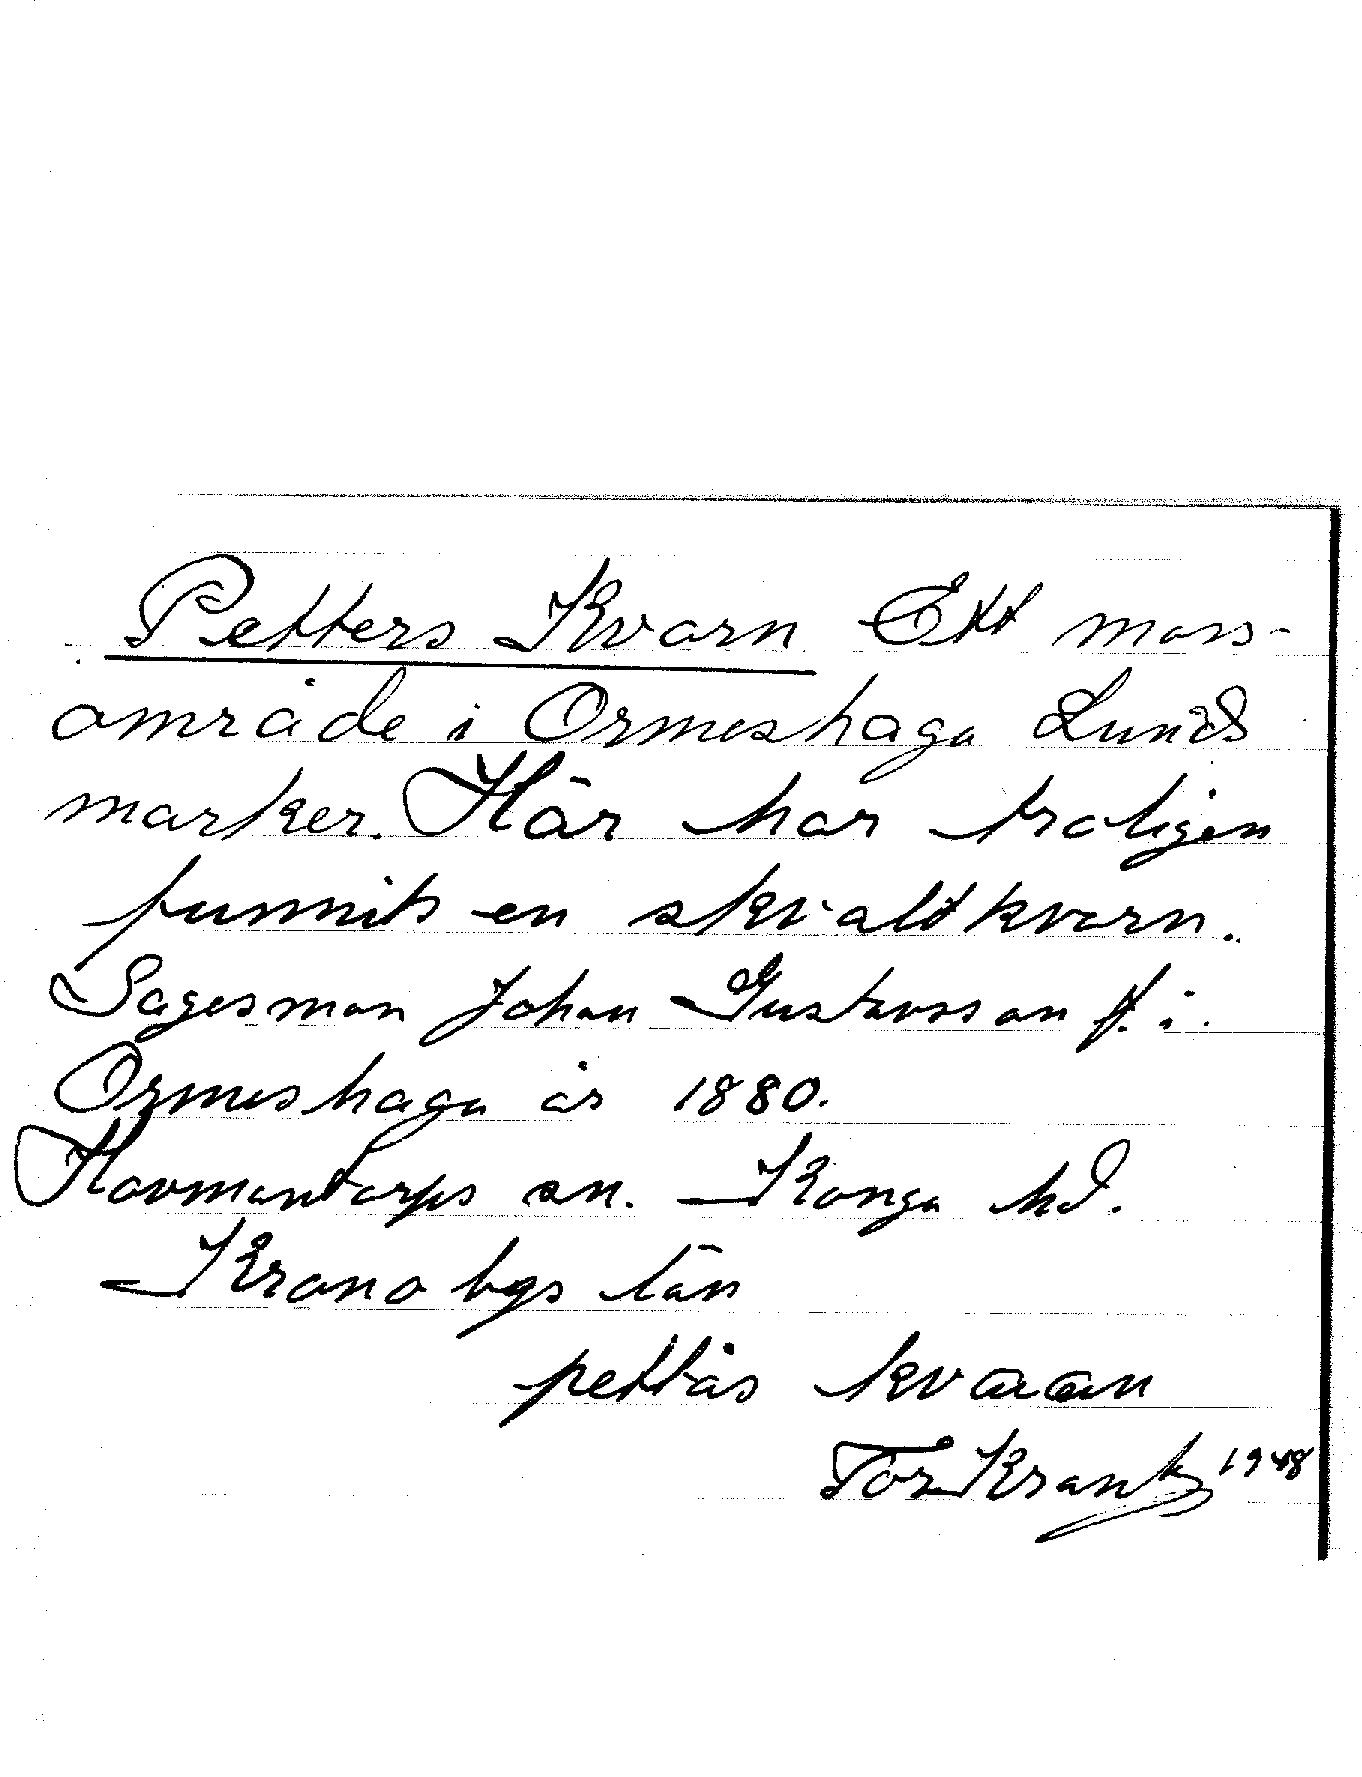 Petters Kvarn Ett moss-
område i Ormeshaga Lunds
marker. Här har troligen
funnits en skvaltkvarn.
Sagesman Johan Gustavsson f. i.
Ormeshaga år 1880.
Hovmantorps sn. Konga hd.
Kronobgs län
pettås kvaan
Tor Krantz 1948